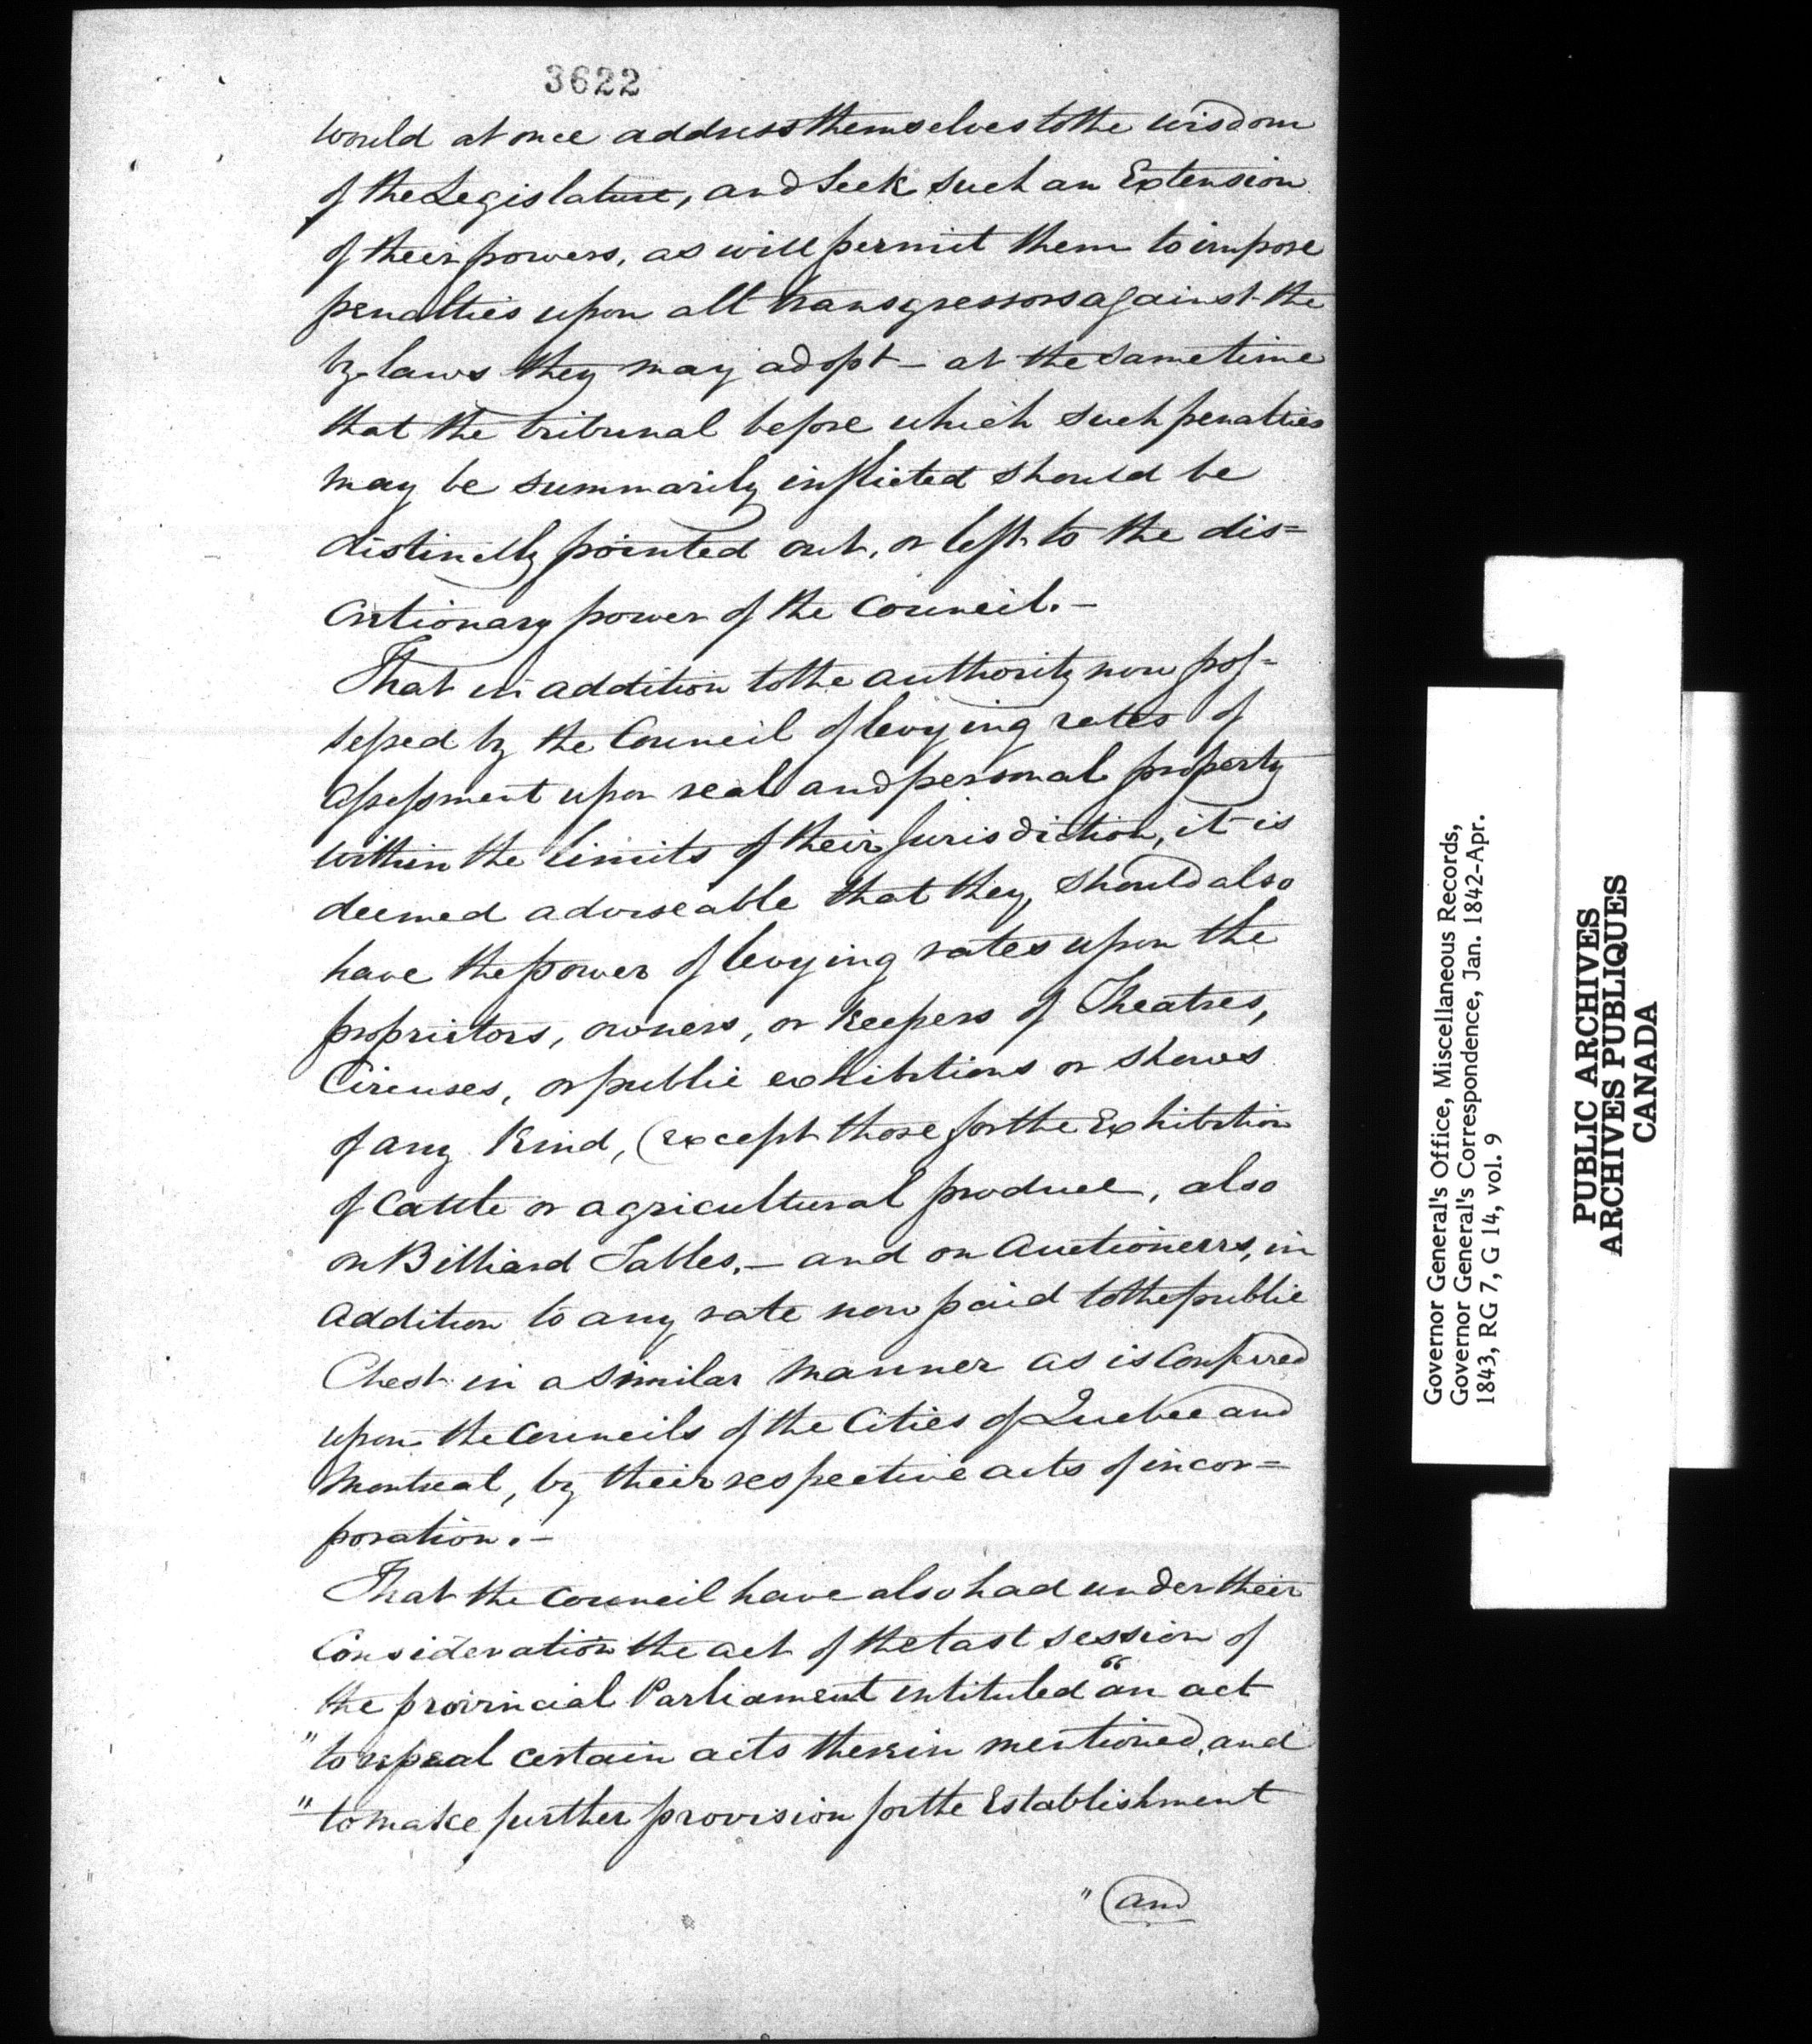 3622
would at once address themselves to the wisdom
of the Legislature, and seek such an Extension
of their powers, as will permit them to impose
penalties upon all transgressors against the
by-laws they may adopt – at the same time
that the tribunal before which such penalties
may be summarily inflicted should be
distinctly pointed out, or left to the dis=
cretionary power of the Council. –
That in addition to the authority now pos=
sessed by the Council of levying rates of
assessment upon real and personal property
within the limits of their Jurisdiction, it is
deemed adviseable that they, should also
have the power of levying rates upon the
proprietors, owners, or Keepers of Theatres,
Circuses, or public exhibitions or shows
of any Kind, (except those for the Exhibition
of Cattle or agricultural produce, also
on Billiard Tables, – and on Auctioneers, in
addition to any rate now paid to the public
Chest in a similar manner as is Conferred
upon the Councils of the Cities of Quebec and
Montreal, by their respective acts of incor=
poration. –
That the Council have also had under their
Consideration the act of the last session of
the provincial Parliament intituled "an act
" to repeal certain acts therein mentioned, and
" to make further provision for the Establishment
" and
Governor General's Office, Miscellaneous Records,
Governor General's Correspondence, Jan. 1842-Apr.
1843, RG 7, G 14, vol. 9
PUBLIC ARCHIVES
ARCHIVES PUBLIQUES
CANADA